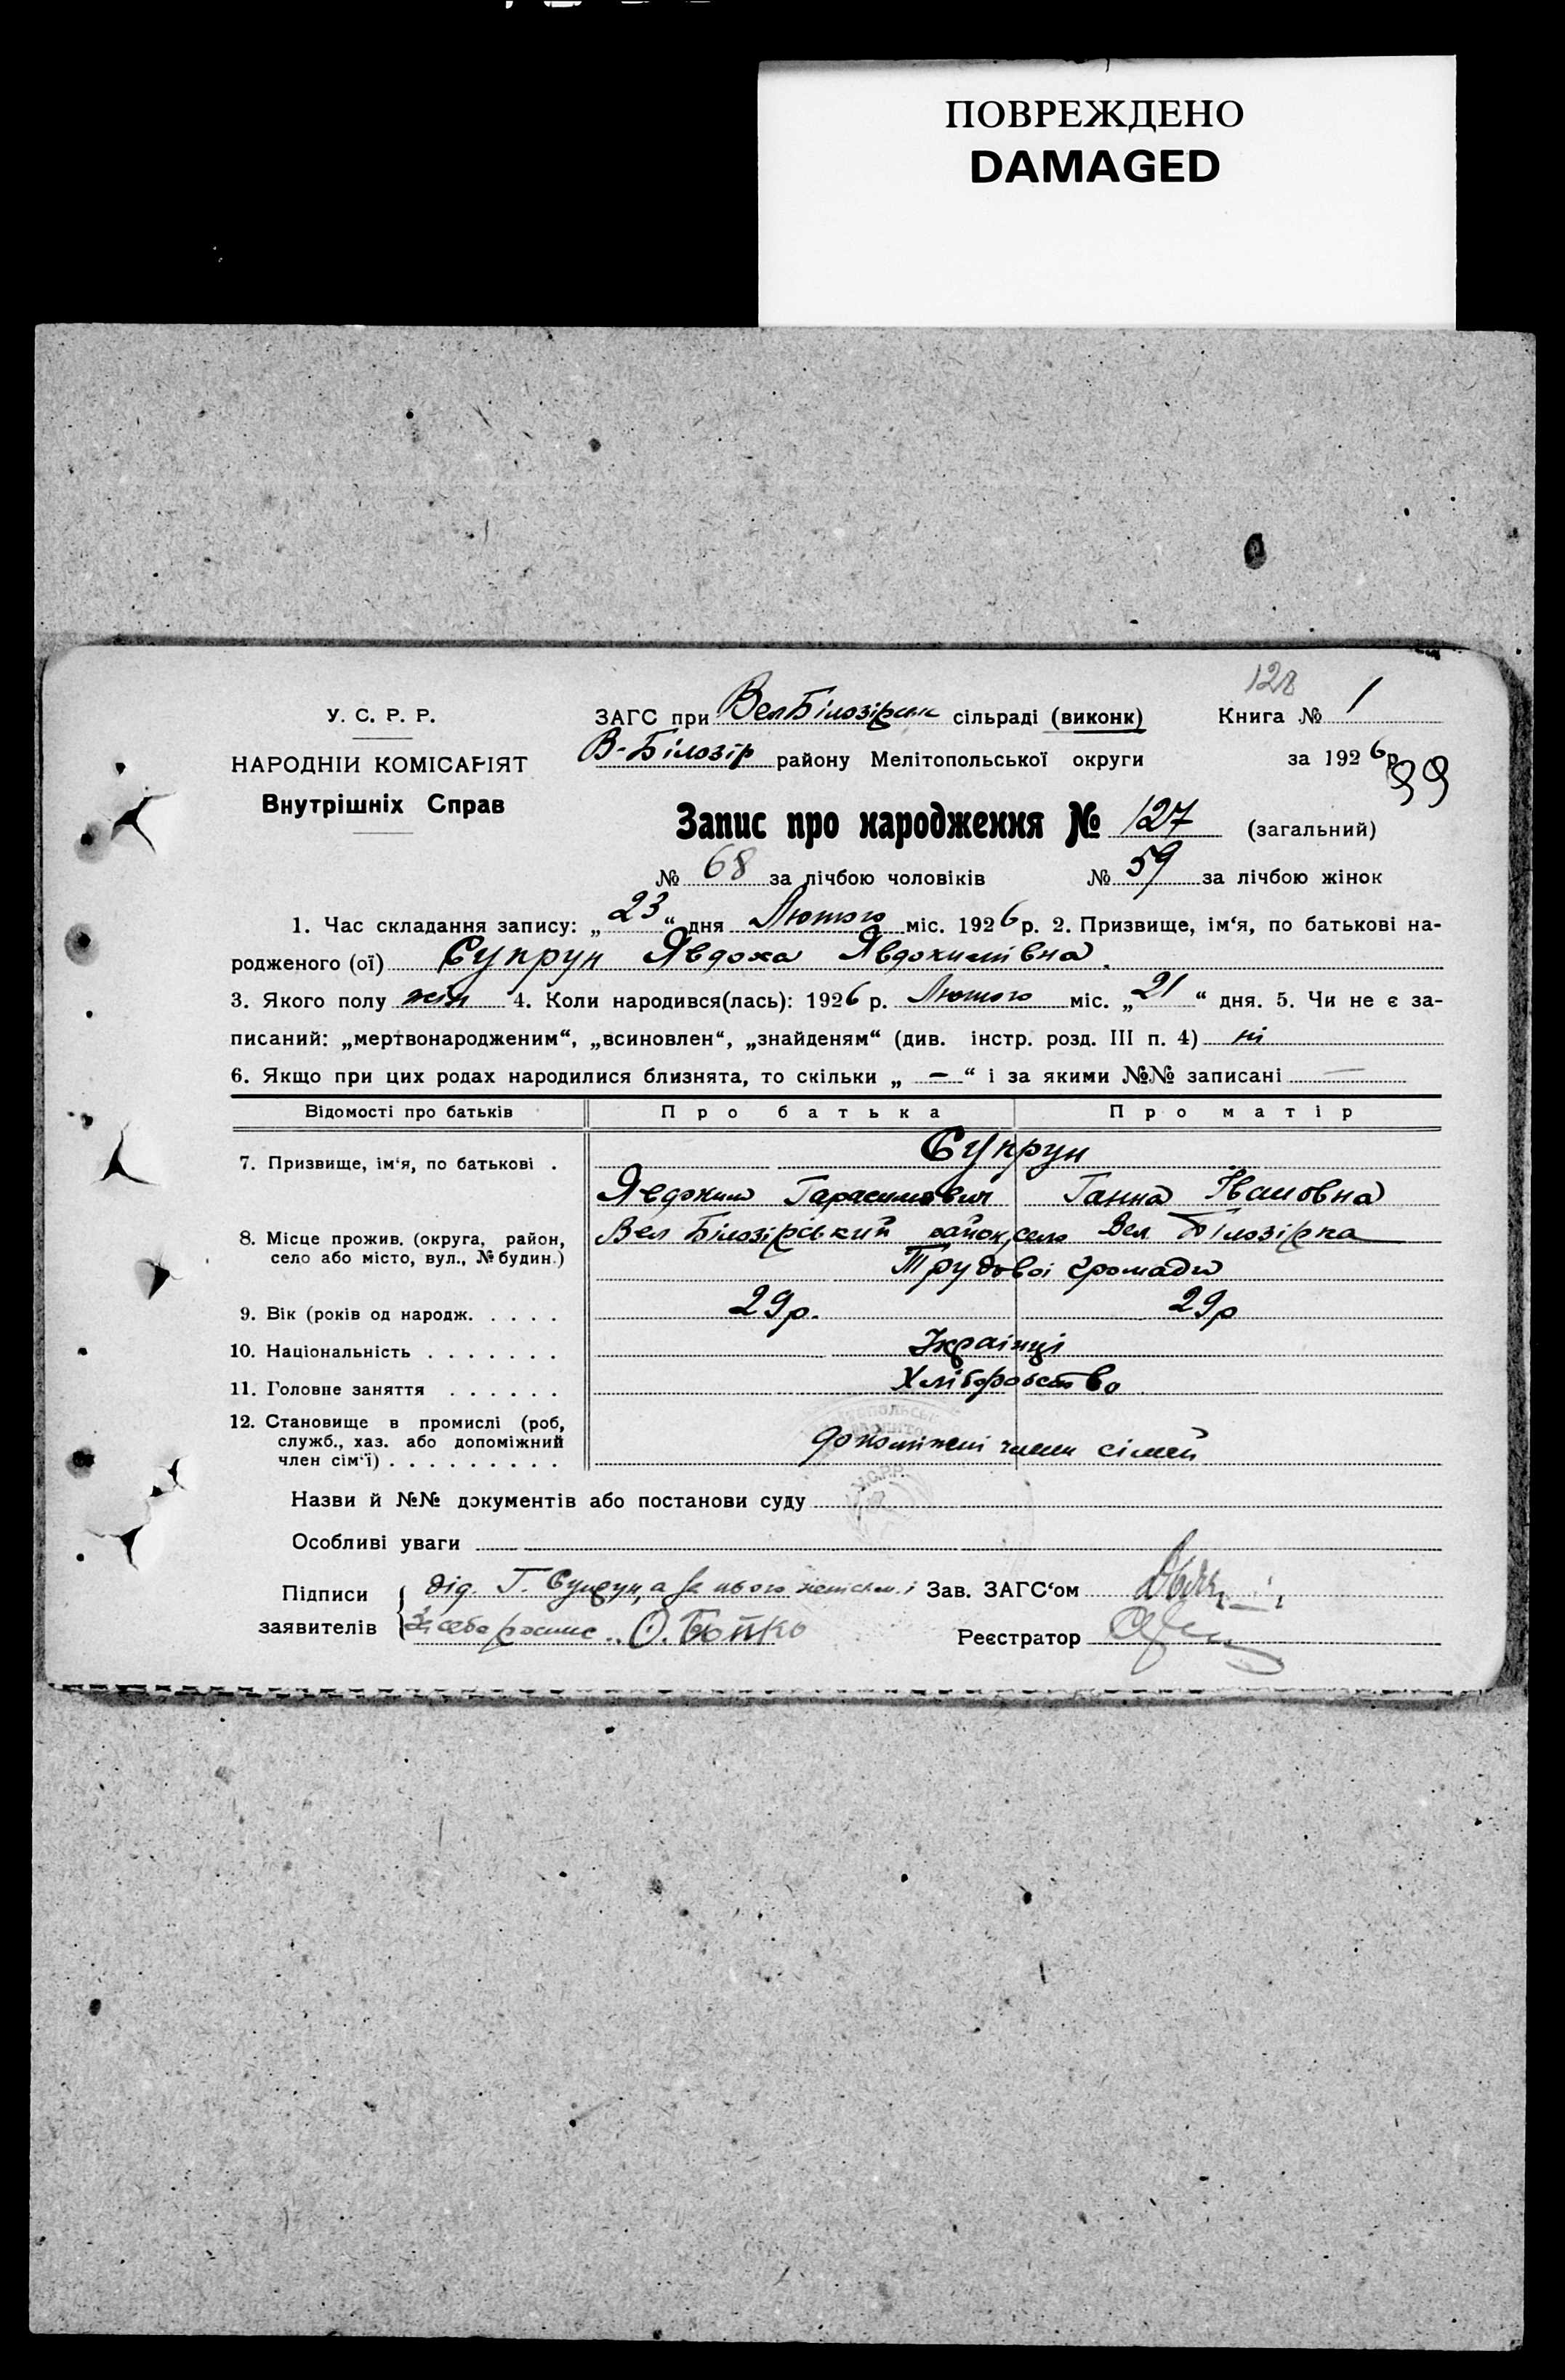 ПОВРЕЖДЕНО
DAMAGED
128
У. С. Р. Р.
ЗАГС при ВелБілозірськ сільраді (виконк)
Книга № 1
НАРОДНІЙ КОМІСАРІЯТ
В-Білозір району Мелітопольської округи
за 1926 р.
99
Внутрішніх Справ
Запис про народження № 127 (загальний)
№ 68 за лічбою чоловіків № 59 за лічбою жінок
1. Час складання запису: „23“ дня Лютого міс. 1926 р. 2. Призвище, ім‘я, по батькові на-
родженого (ої) Супрун Явдоха Явдокимівна.
3. Якого полу жін 4. Коли народився(лась): 1926 р. Лютого міс. „21“ дня. 5. Чи не є за-
писаний: „мертвонародженим“, „всиновлен“, „знайденям“ (див. інстр. розд. III п. 4) ні
6. Якщо при цих родах народилися близнята, то скільки „ — “ і за якими №№ записані —
Відомості про батьків Про батька Про матір
7. Призвище, ім‘я, по батькові . Супрун
Явдоким Гарасимович Ганна Івановна
8. Місце прожив. (округа, район, Вел Білозірський район, село Вел Білозірка
село або місто, вул., № будин.)
Трудової громади
9. Вік (років од народж. . . . . 29р. 29р
10. Національність . . . . . . . Українці
11. Головне заняття . . . . . . Хліборобство
12. Становище в промислі (роб,
служб., хаз. або допоміжний допоміжні члени сімей
член сім‘ї) . . . . . . . . .
Назви й №№ документів або постанови суду
Особливі уваги
Підписи дід Г. Супрун, а за нього неписьм. і Зав. ЗАГС‘ом
заявителів За себе роспис. О. Бойко
Реєстратор